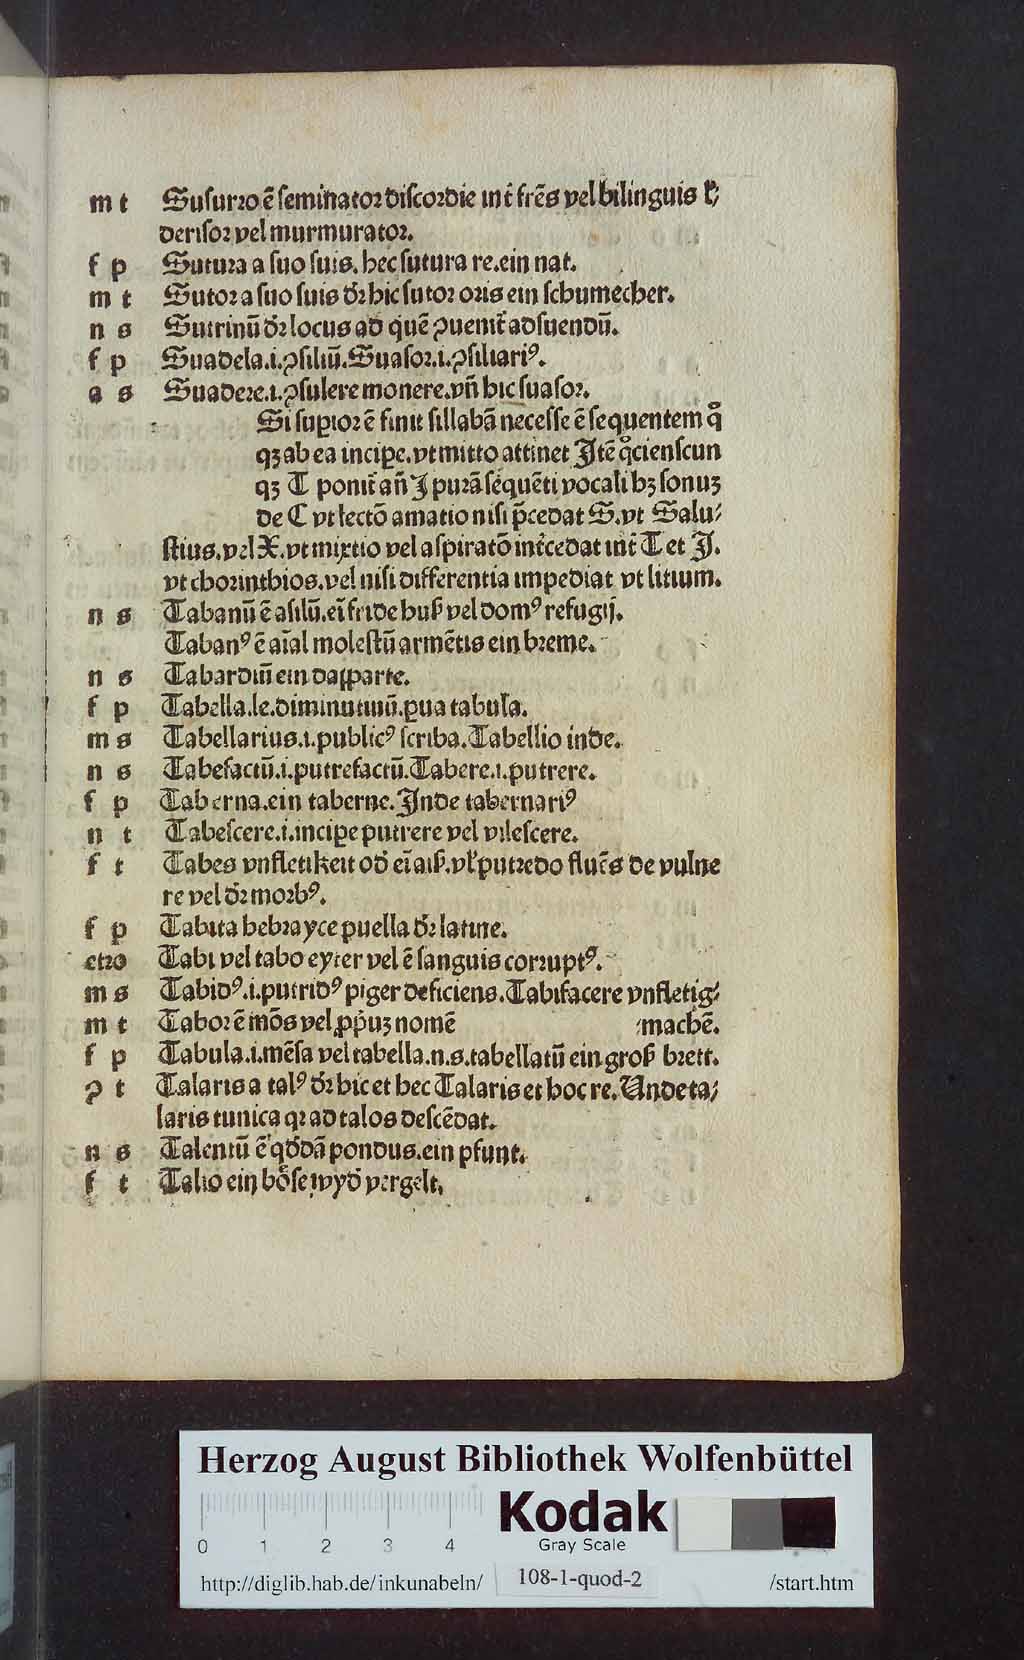 m t Suſurro ē ſeminator diſcordie int̄ fr̄es vel bilinguis
deriſor vel murmurator.
f p Sutura a ſuo ſuis. hec ſutura re.ein nat.
m t Sutor a ſuo ſuis dr̄ hic ſutor oris ein ſchumecher.
n s Sutrinū dr̄ locus ad quē ꝯuenit̄ ad ſuendū.
f p Suadela.i.ꝯſiliū.Suaſor.i.ꝯſiliariꝰ.
a s Suadere.i.ꝯſulere monere.vn̄ hic ſuaſor.
Si ſupior ē finit ſillabā neceſſe ē ſequentem qͦ
qꝫ ab ea incipe.vt mitto attinet Jtē qͦcienſcun
qꝫ T ponit̄ an̄ J purā ſequēti vocali bꝫ ſonuꝫ
de C vt lectō amatio niſi p̄cedat S.vt Salu⸗
ſtius.vel X.vt mixtio vel aſpiratō int̄cedat int̄ T et J.
vt chorinthios.vel niſi differentia impediat vt litium.
n s Tabanū ē aſilū.eī fride huß vel domꝰ refugij.
Tabanꝰ ē aīal moleſtū armētis ein breme.
n s Tabardiū ein daſparte.
f p Tabella.le.diminutiuū.pua tabula.
m s Tabellarius.i.publicꝰ ſcriba.Tabellio inde.
n s Tabefactū.i.putrefactū.Tabere.i.putrere.
f p Taberna.ein taberne.Jnde tabernariꝰ
n t Tabeſcere.i.incipe putrere vel vileſcere.
f t Tabes vnfletikeit od̄ eī aiß.vl̓ putredo fluēs de vulne
re vel dr̄ morbꝰ.
f p Tabita hebrayce puella dr̄ latine.
etro Tabi vel tabo eyter vel ē ſanguis corruptꝰ.
m s Tabidꝰ.i.putridꝰ piger deficiens.Tabifacere vnfletig⸗
m t Tabor ē mōs vel ꝓp̓uꝫ nomē machē.
f p Tabula.i.mēſa vel tabella.n.s.tabellatū ein groß brett.
ꝯ t Talaris a talꝰ dr̄ hic et hec Talaris et hoc re.Unde ta⸗
laris tunica qꝛ ad talos deſcēdat.
n s Talentū ē qd̄dā pondus.ein pfunt.
f t Talio ein böſe wyd̄ vergelt.
Herzog August Bibliothek Wolfenbüttel
0 1 2 3 4
Kodak
Gray Scale
http://diglib.hab.de/inkunabeln/ 108-1-quod-2 /start.htm